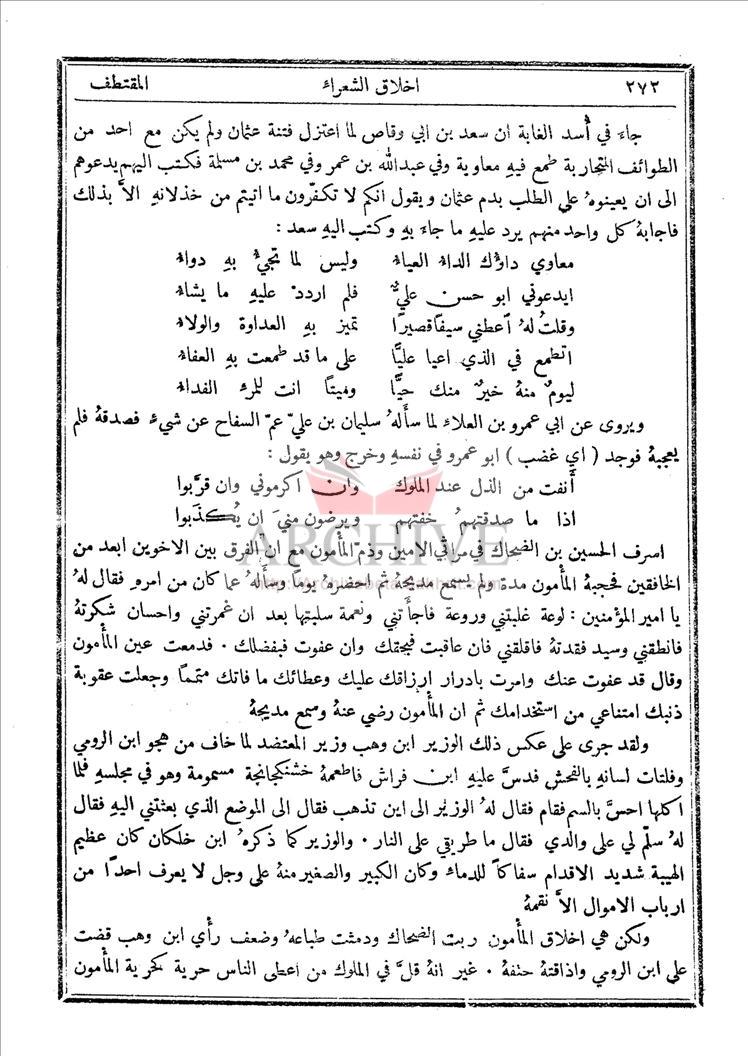 ٢٧٢ اخلاق الشعراء المقتطف
جاءَ في أُسد الغابة ان سعد بن ابي وقاص لما اعتزل فتنة عثمان ولم يكن مع احد من
الطوائف المتحاربة طمع فيهِ معاوية وفي عبدالله بن عمر وفي محمد بن مسلمة فكتب اليهم يدعوهم
الى ان يعينوهُ على الطلب بدم عثمان ويقول انكم لا تكفّرون ما اتيتم من خذلانهِ الاَّ بذلك
فاجابهُ كل واحد منهم يرد عليهِ ما جاءَ بهِ وكتب اليهِ سعد :
معاوي داؤك الداء العياء وليس لما تجيءُ بهِ دواء
ايدعوني ابو حسن عليٌّ فلم اردد عليهِ ما يشاء
وقلتُ لهُ اعطني سيفاً قصيرًا تميز بهِ العداوة والولاء
اتطمع في الذي اعيا عليًّا على ما قد طمعت بهِ العفاء
ليومٌ منهُ خيرٌ منك حيًّا وميتاً انت للمرء الفداء
ويروى عن ابي عمرو بن العلاء لما سأَلهُ سليمان بن عليّ عمّ السفاح عن شيء فصدقهُ فلم
يعجبهُ فوجد ( اي غضب ) ابو عمرو في نفسهِ وخرج وهو يقول :
أَنفت من الذل عند الملوك وان اكرموني وان قرَّبوا
اذا ما صدقتهمُ خفتهم ويرضون مني ان يُكذَبوا
ARCHIVE
اسرف الحسين بن الضحاك في مراثي الامين وذم المأمون مع ان الفرق بين الاخوين ابعد من
الخافقين فحجبهُ المأمون مدة ولم يسمع مديحهُ ثم احضرهُ يوماً وسأَلهُ عما كان من امرهِ فقال لهُ
يا امير المؤمنين : لوعة غلبتني وروعة فاجأَتني ونعمة سلبتها بعد ان غمرتني واحسان شكرتهُ
فانطقني وسيد فقدتهُ فاقلقني فان عاقبت فبحقك وان عفوت فبفضلك . فدمعت عين المأمون
وقال قد عفوت عنك وامرت بادرار ارزاقك عليك وعطائك ما فاتك متمماً وجعلت عقوبة
ذنبك امتناعي من استخدامك ثم ان المأمون رضي عنهُ وسمع مديحهُ
ولقد جرى على عكس ذلك الوزير ابن وهب وزير المعتضد لما خاف من هجو ابن الرومي
وفلتات لسانهِ بالفحش فدسَّ عليهِ ابن فراش فاطعمهُ خشنكنجانجة مسمومة وهو في مجلسهِ فلما
اكلها احسَّ بالسم فقام فقال لهُ الوزير الى اين تذهب فقال الى الموضع الذي بعثتني اليهِ فقال
لهُ سلّم لي على والدي فقال ما طريقي على النار . والوزير كما ذكرهُ ابن خلكان كان عظيم
الهيبة شديد الاقدام سفاكاً للدماء وكان الكبير والصغير منهُ على وجل لا يعرف احدًا من
ارباب الاموال الاَّ نقمهُ
ولكن هي اخلاق المأمون ربت الضحاك ودمثت طباعهُ وضعف رأي ابن وهب قضت
على ابن الرومي واذاقتهُ حتفهُ . غير انهُ قلَّ في الملوك من اعطى الناس حرية كحرية المأمون